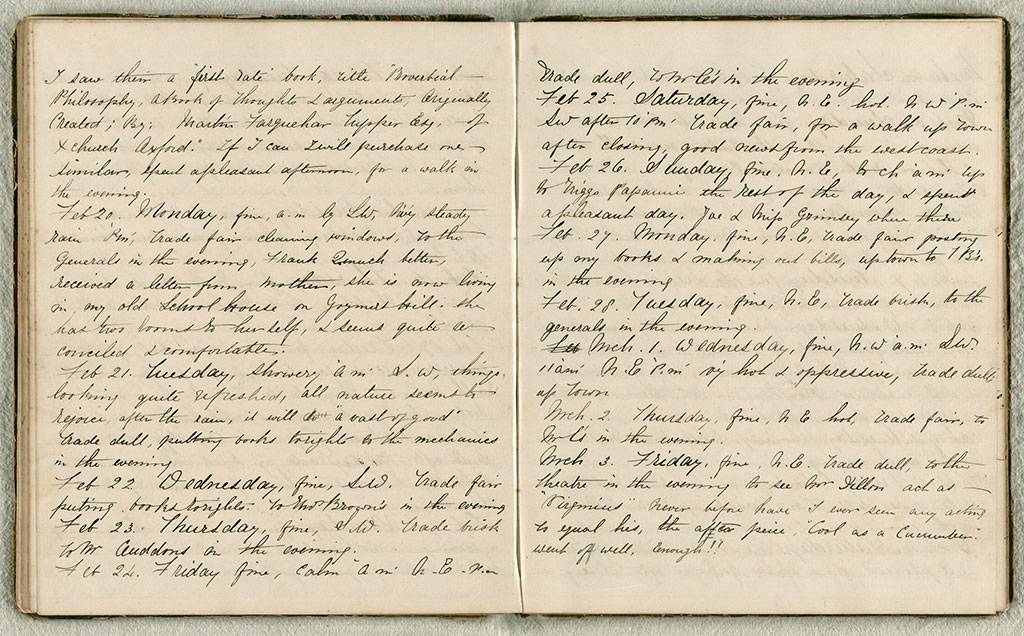 I saw them a "first rate" book, title "Proverbial
Philosophy, a Book of Thoughts & arguments, Originally
Created; By; Martin Farquehar Tupper Esq, of
X church Oxford." If I can I will purchase one
similar, spent a pleasant afternoon, for a walk in
the evening.
Feb 20. Monday, fine, a.m by S.W, Very steady
rain P.m, trade fair cleaning windows, to the
Generals in the evening, Frank much better,
received a letter from Mother, she is now living
in my old School house on Goymers hill. she
has two rooms to herself, & seems quite re
conciled & comfortable.
Feb 21. Tuesday, showery a.m S.W, things
looking quite refreshed, all nature seems to
rejoice, after the rain, it will do "a vast of good"
trade dull, putting books torights to the mechanics
in the evening
Feb 22 Wednesday, fine, S.W. trade fair
puting books torights. To Thos Brown's in the evening
Feb 23. Thursday, fine, S.W. Trade brisk
to Mr Cuddons in the evening.
Feb 24. Friday fine, calm a.m N.E. P.m
trade dull, to Mr C's in the evening
Feb 25. Saturday, fine, N.E. hot N W P.m
S.W after 10 P.m. trade fair, for a walk up town
after closing, good news from the west coast.
Feb 26. Sunday, fine, N.E, to ch a.m up
to Griggs Papanui the rest of the day, & spent
a pleasant day. Joe & Miss Grimsey where there
Feb. 27. Monday. fine, N.E, trade fair posting
up my books & making out bills, up town to B's.
in the evening
Feb. 28. Tuesday, fine, N.E, trade brisk, to the
generals in the evening.
Feb Mch. 1. Wednesday, fine, N.W a.m. S.W.
11 am N.E P.m. vy hot & oppressive, trade dull
up town
Mch. 2. Thursday, fine, N E hot, trade fair, to
Mr C's in the evening.
Mch 3. Friday, fine, N.E. trade dull, to the
theatre in the evening to see Mr Dillon act as
"Virginius" Never before have I ever seen any acting
to equal his, the after peice "Cool as a Cucumber"
went off well, Enough!!